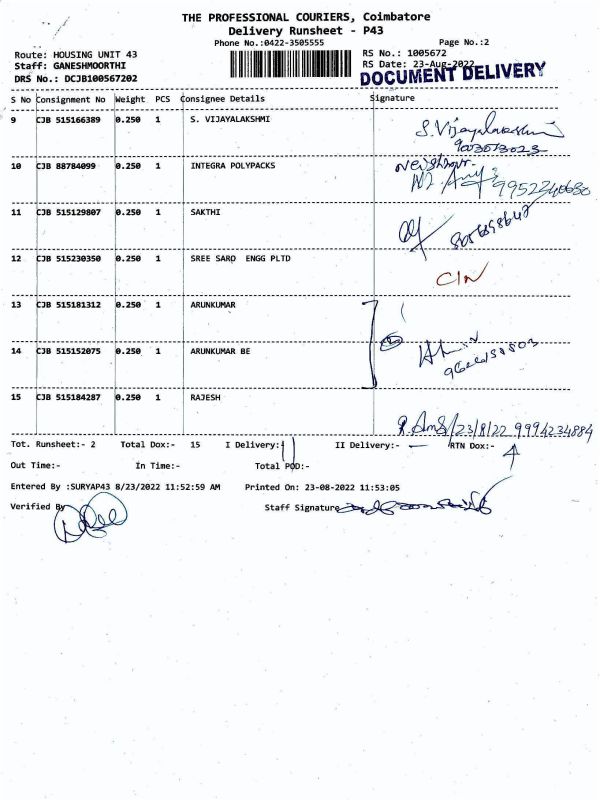 THE PROFESSIONAL COURIERS, Coimbatore
Delivery Runsheet - P43
Phone No.:0422-3505555 Page No.:2
Route: HOUSING UNIT 43 RS No.: 1005672
Staff: GANESHMOORTHI RS Date: 23-Aug-2022
DRS No.: DCJB100567202 DOCUMENT DELIVERY
S No Consignment No Weight PCS Consignee Details Signature
9 CJB 515166389 0.250 1 S. VIJAYALAKSHMI S. Vijayalakshmi
10 CJB 88784099 0.250 1 INTEGRA POLYPACKS Neighbour
11 CJB 515129807 0.250 1 SAKTHI
12 CJB 515230350 0.250 1 SREE SARO ENGG PLTD CIN
13 CJB 515181312 0.250 1 ARUNKUMAR
14 CJB 515152075 0.250 1 ARUNKUMAR BE
15 CJB 515184287 0.250 1 RAJESH 23/8/22 9994234884
Tot. Runsheet:- 2 Total Dox:- 15 I Delivery:- II Delivery:- RTN Dox:-
Out Time:- In Time:- Total POD:-
Entered By :SURYAP43 8/23/2022 11:52:59 AM Printed On: 23-08-2022 11:53:05
Verified By Staff Signature